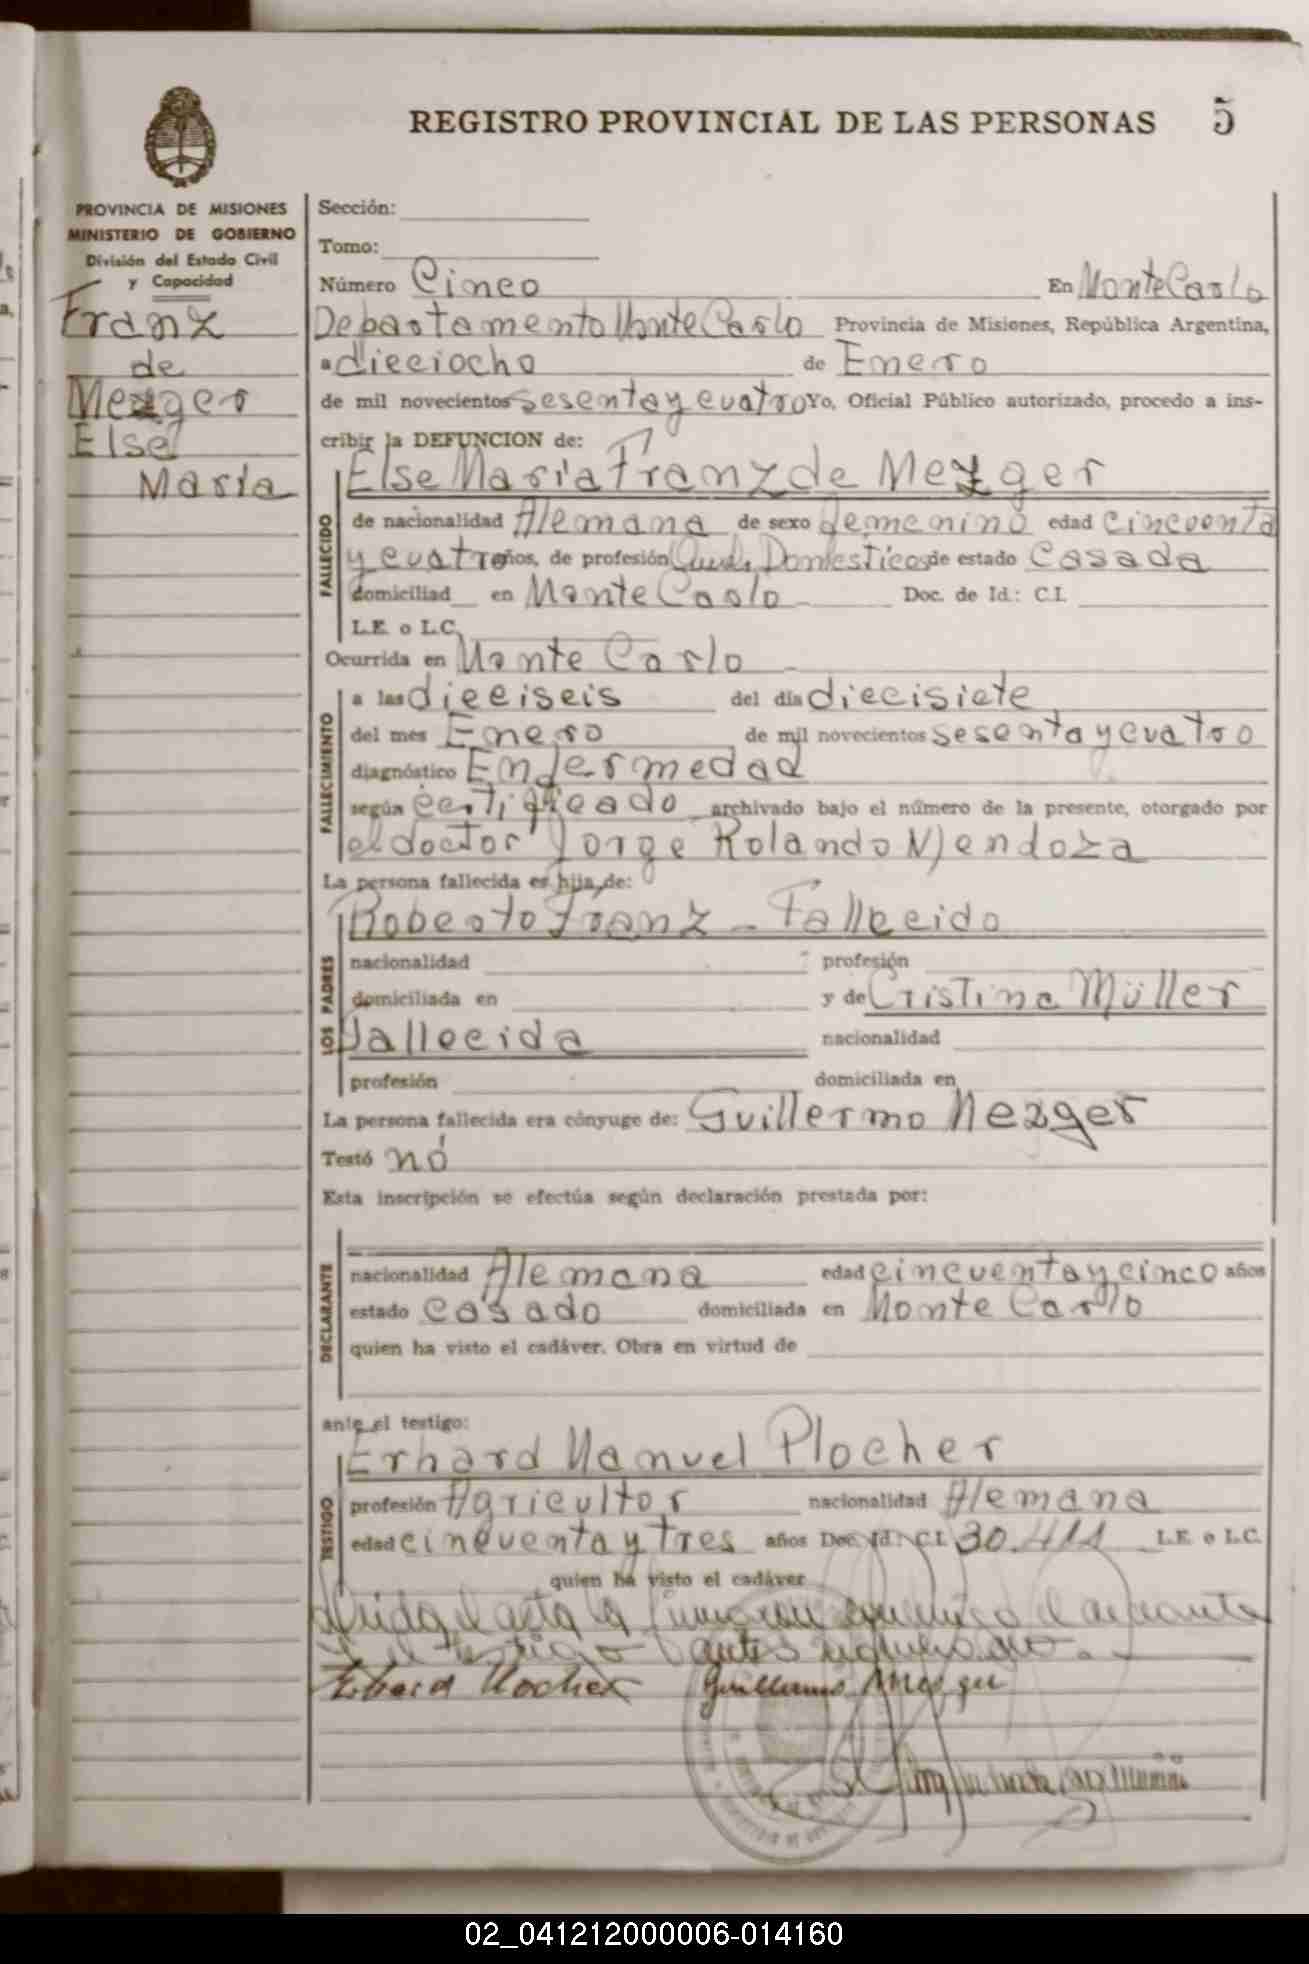 REGISTRO PROVINCIAL DE LAS PERSONAS 5
PROVINCIA DE MISIONES
MINISTERIO DE GOBIERNO
División del Estado Civil
y Capacidad
Franz
de
Mezger
Else
Maria
Sección:
Tomo:
Número Cinco En Monte Carlo
Departamento Monte Carlo Provincia de Misiones, República Argentina,
a dieciocho de Enero
de mil novecientos sesenta y cuatro Yo, Oficial Público autorizado, procedo a ins-
cribir la DEFUNCION de:
Else Maria Franz de Mezger
FALLECIDO
de nacionalidad Alemana de sexo femenino edad cincuenta
y cuatro años, de profesión Domesticos de estado Casada
domiciliad en Monte Carlo Doc. de Id.: C.I.
L.E. o L.C.
Ocurrida en Monte Carlo
FALLECIMIENTO
a las dieciseis del día diecisiete
del mes Enero de mil novecientos sesenta y cuatro
diagnóstico Enfermedad
según certificado archivado bajo el número de la presente, otorgado por
el doctor Jorge Rolando Mendoza
La persona fallecida es hija de:
LOS PADRES
Roberto Franz - Fallecido
nacionalidad profesión
domiciliada en y de Cristina Müller
Fallecida nacionalidad
profesión domiciliada en
La persona fallecida era cónyuge de: Guillermo Mezger
Testó nó
Esta inscripción se efectúa según declaración prestada por:
DECLARANTE
nacionalidad Alemana edad cincuenta y cinco años
estado casado domiciliada en Monte Carlo
quien ha visto el cadáver. Obra en virtud de
ante el testigo:
Erhard Manuel Plocher
TESTIGO
profesión Agricultor nacionalidad Alemana
edad cincuenta y tres años Doc. Id.: C.I. 30.411 L.E. o L.C.
quien ha visto el cadáver
el acta la
y el testigo
Erhard Plocher Guillermo Mezger
02_041212000006-014160